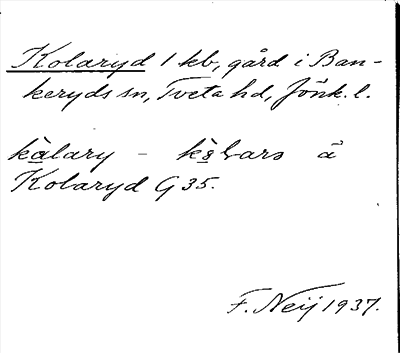 Kolaryd 1 kb, gård i Ban-
keryds sn, Tveta hd, Jönk. l.
kàlary – å
Kolaryd G 35.
F. Neij 1937.